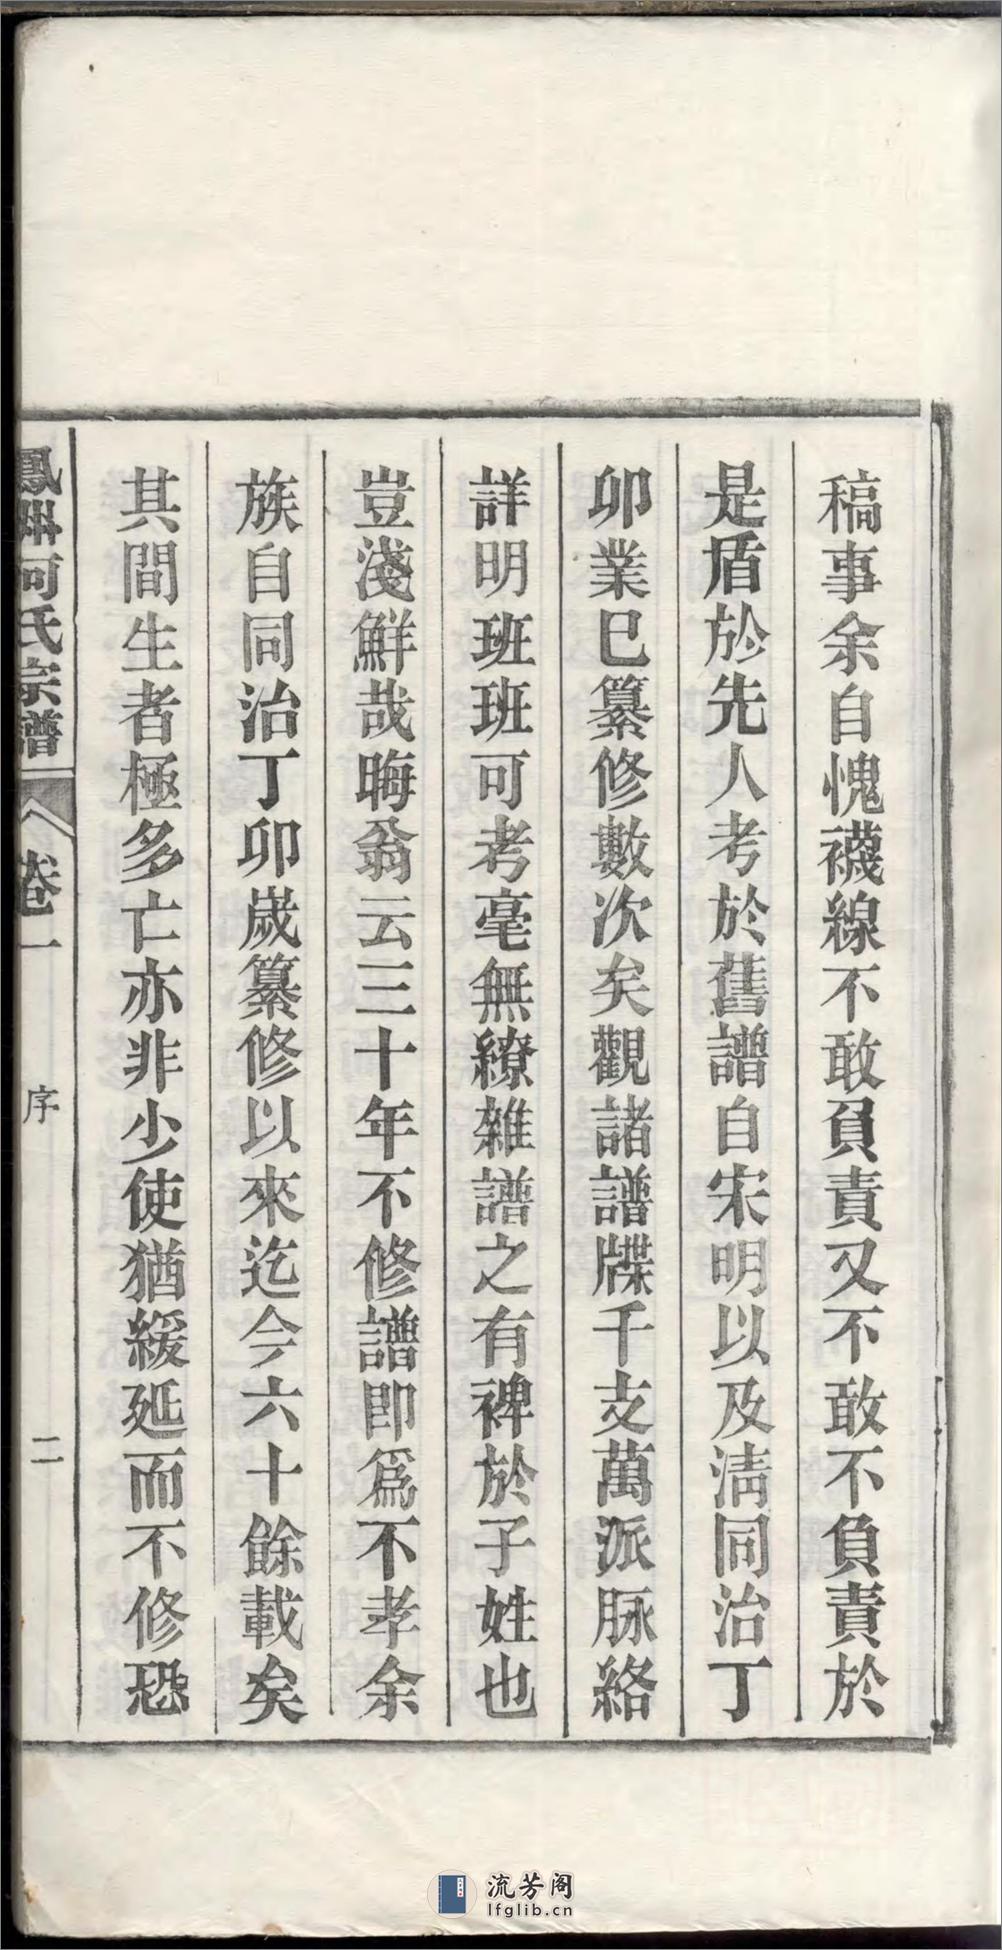 稿事余自愧襪線不敢負責又不敢不負責於
是盾於先人考於舊譜自宋明以及淸同治丁
卯業巳纂修數次矣觀諸譜牒千支萬派脉絡
詳明班班可考毫無繚雜譜之有裨於子姓也
豈淺鮮哉晦翁云三十年不修譜卽爲不孝余
族自同治丁卯歲纂修以來迄今六十餘載矣
其間生者極多亡亦非少使猶緩延而不修恐
鳳州何氏宗譜 卷一 序 二
流芳阁
lfglib.cn